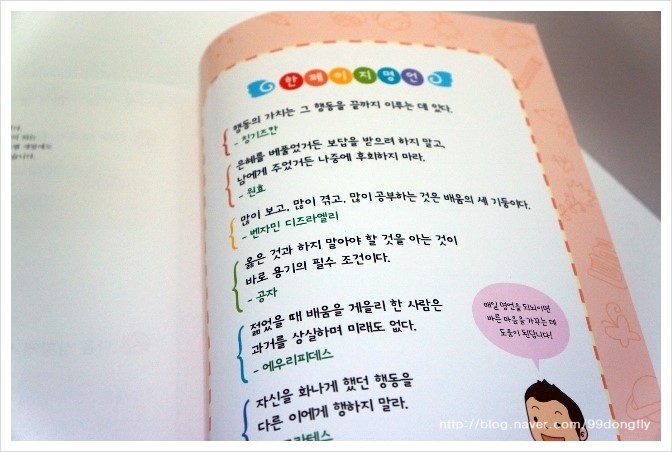 한페이지명언
행동의 가치는 그 행동을 끝까지 이루는 데 있다.
- 칭기즈칸
은혜를 베풀었거든 보답을 받으려 하지 말고,
남에게 주었거든 나중에 후회하지 마라.
- 원효
많이 보고, 많이 겪고, 많이 공부하는 것은 배움의 세 기둥이다.
- 벤자민 디즈라엘리
옳은 것과 하지 말아야 할 것을 아는 것이
바로 용기의 필수 조건이다.
- 공자
젊었을 때 배움을 게을리 한 사람은
과거를 상실하며 미래도 없다.
- 에우리피데스
자신을 화나게 했던 행동을
다른 이에게 행하지 말라.
매일 명언을 되뇌이면
바른 마음을 가꾸는 데
도움이 된답니다!
http://blog.naver.com/99dongfly